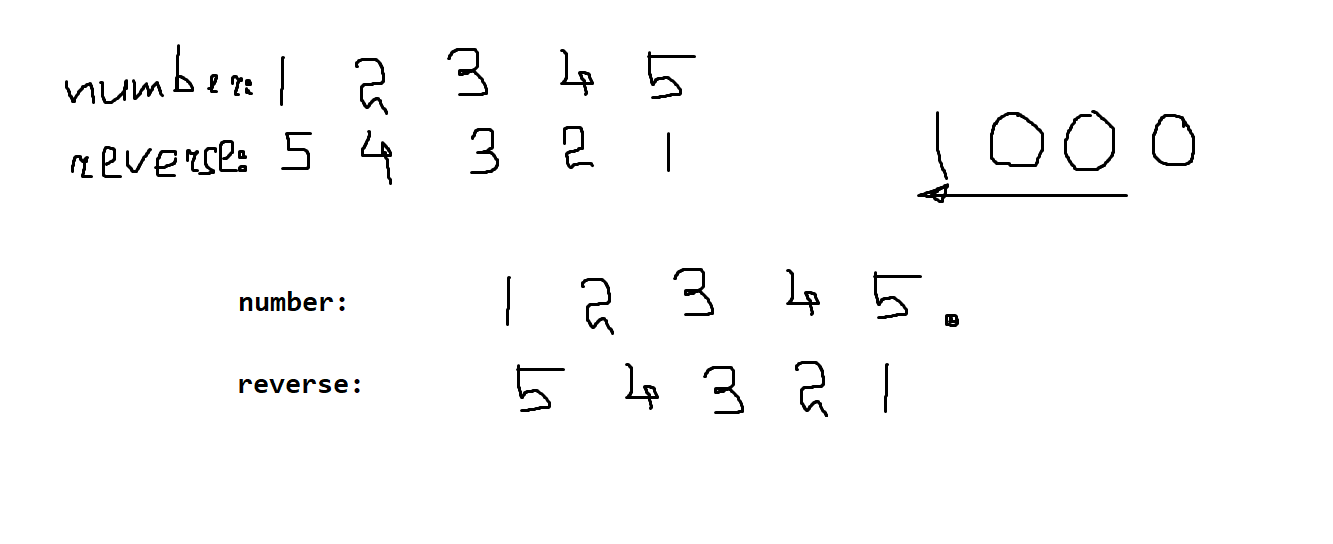 number: 1 2 3 4 5
reverse: 5 4 3 2 1
1 0 0 0
number: 1 2 3 4 5 .
reverse: 5 4 3 2 1